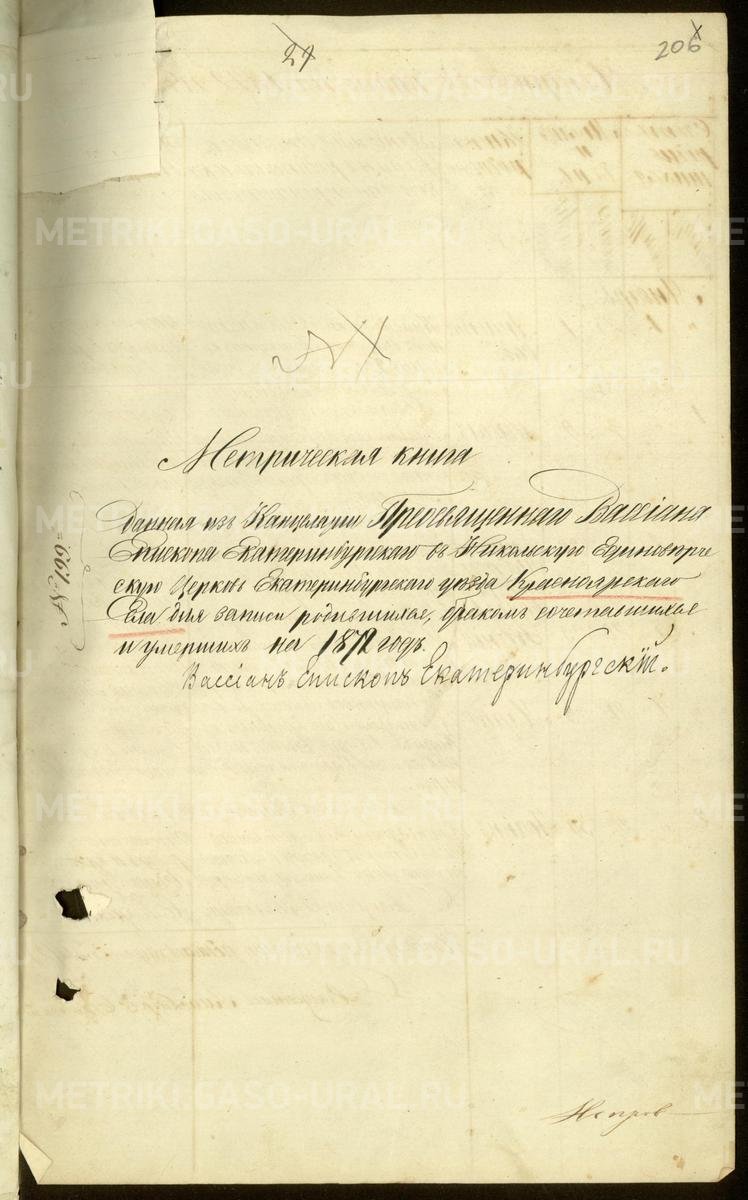 27
206
Метрическая книга
Данная изъ Канцеляріи Преосвященнаго Вассіана
Епископа Екатеринбургскаго въ Никольскую Единоверче
скую Церковь Екатеринбургскаго уезда Красноярскаго
Села для записи родившихся, бракомъ сочетавшихся
и умершихъ на 1872 годъ.
Вассіанъ епископъ Екатеринбургскій.
METRIKI.GASO-URAL.RU